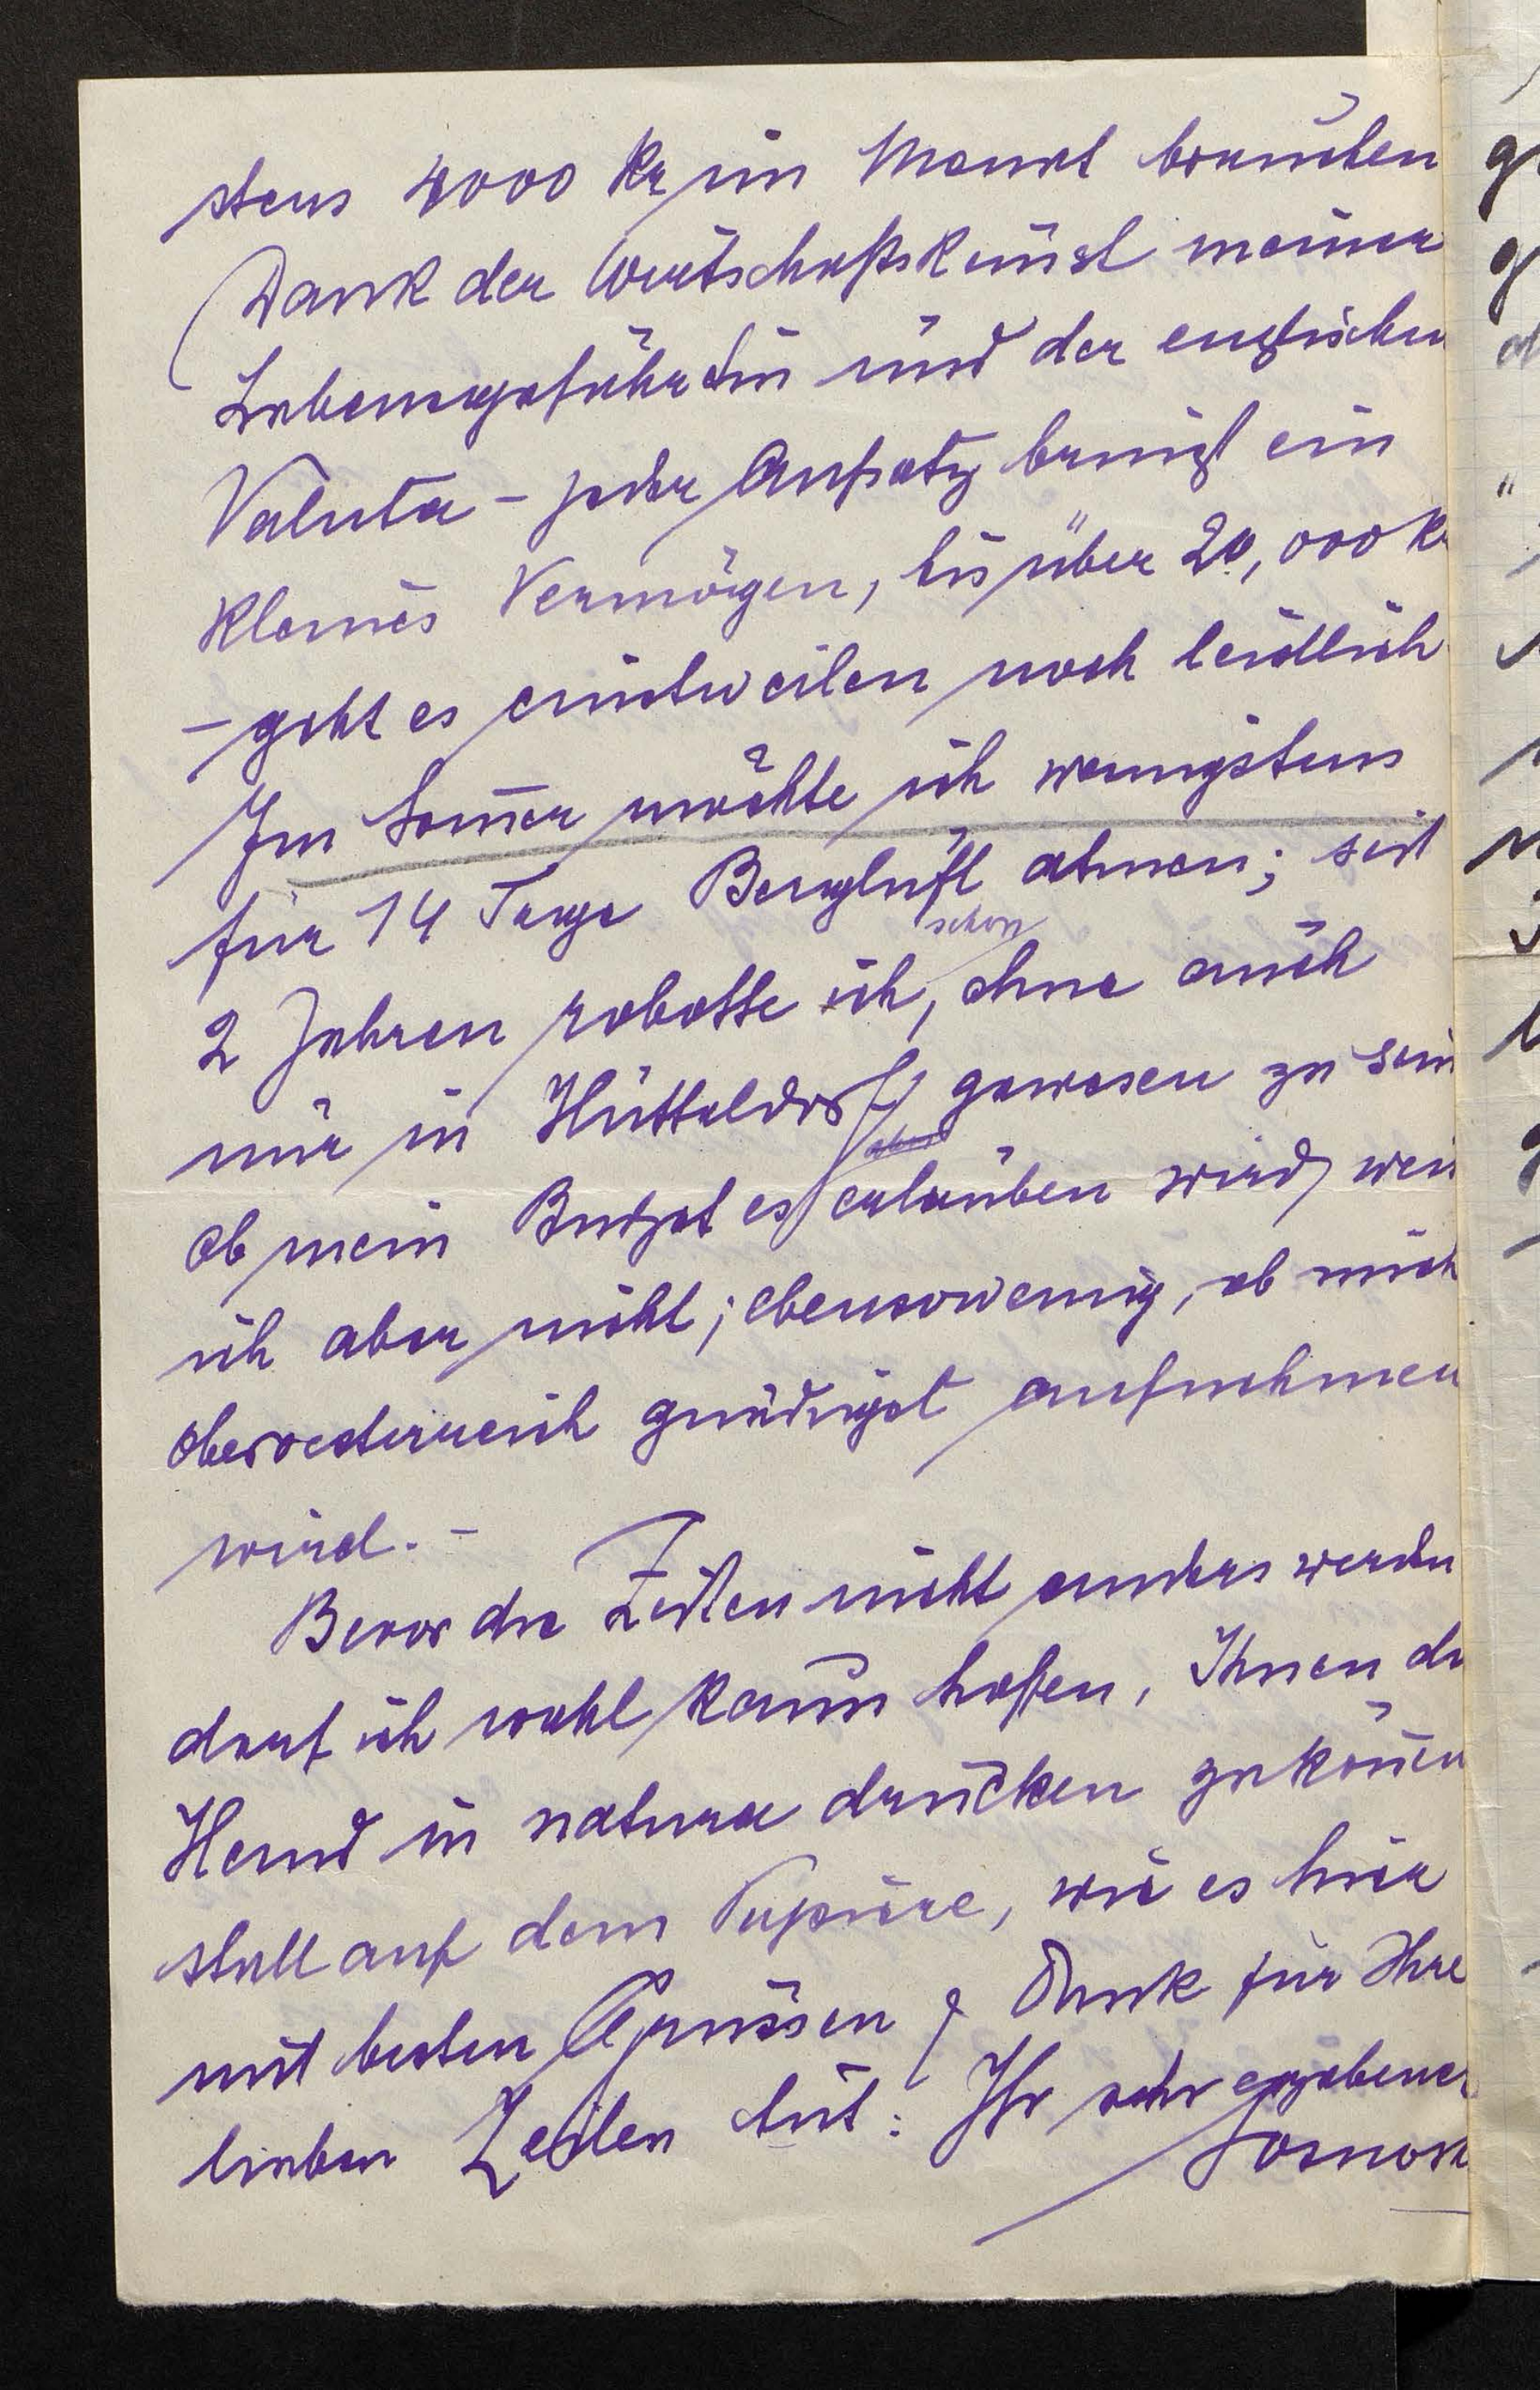 stens 4000 Kr im Monat brauchen
Dank der Wirtschaftskunst meiner
Lebensgefährtin und der englischen
Valuta – jeder Aufsatz bringt ein
kleines Vermögen, bis über 20,000 K
– geht es einstweilen noch leidlich
Im Som̅er möchte ich wenigstens
für 14 Tage Bergluft atmen; seit
schon
2 Jahren robotte ich, ohne auch
nur in Hütteldorf gewesen zu sein
ob mein Budget es erlauben wird, weis
ich aber nicht; ebensowenig, ob mich
Oberoesterreich gnädigst aufnehmen
wird. –
Bevor die Zeiten nicht anders werden
darf ich wohl kaum hoffen, Ihnen di
Hand in natura drücken zu kön̅en
statt auf dem Papiere, wie es hier
mit besten Grüssen & Dank für Ihre
lieben Zeilen tut: Ihr sehr ergebener